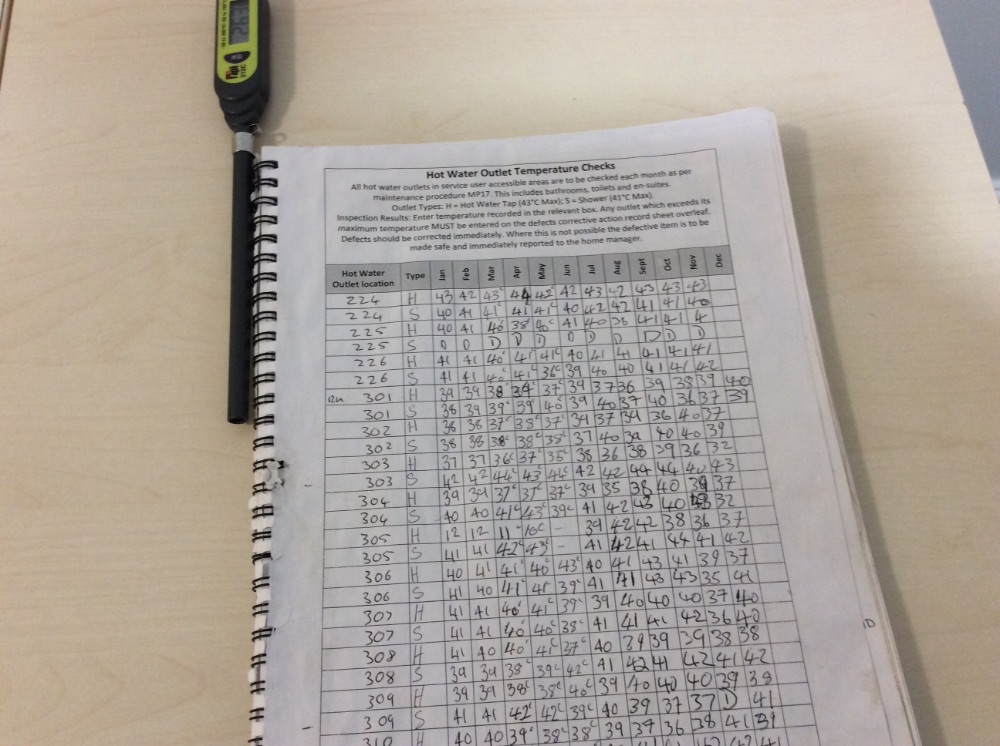 Hot Water Outlet Temperature Checks
All hot water outlets in service user accessible areas are to be checked each month as per
maintenance procedure MP17. This includes bathrooms, toilets and en-suites.
Outlet Types: H = Hot Water Tap (43°C Max); S = Shower (41°C Max).
Inspection Results: Enter temperature recorded in the relevant box. Any outlet which exceeds its
maximum temperature MUST be entered on the defects corrective action record sheet overleaf.
Defects should be corrected immediately. Where this is not possible the defective item is to be
made safe and immediately reported to the home manager.
Hot Water Outlet location Type Jan Feb Mar Apr May Jun Jul Aug Sept Oct Nov Dec
224 H 43 42 43c 44 42c 42 43 42 43 43 43
224 S 40 41 41c 41 41c 40 42 42 41 41 40
225 H 40 41 40c 38c 40c 41 40 38 41 41 4
225 S D D D D D D D D D D D
226 H 41 41 40c 41c 41c 40 41 41 41 41 41
226 S 41 41 40c 41c 36c 39 40 40 41 41 42
301 H 39 39 38c 34c 37c 39 37 36 39 38 39 40
301 S 38 39 39c 39c 40c 39 40 37 40 36 37 39
302 H 38 38 37c 38c 37c 39 37 39 36 40 37
302 S 38 38 38c 38c 38c 37 40 39 40 40 39
303 H 37 37 36c 37c 35c 38 36 38 39 36 32
303 S 42 42 44c 43c 44c 42 42 44 44 40 43
304 H 39 39 37c 37c 37c 39 35 38 40 37
304 S 40 40 41c 43c 39c 41 42 43 40 32
305 H 12 12 11c 10c - 39 42 42 38 36 37
305 S 41 41 42c 43c - 41 42 41 44 41 42
306 H 40 41 41c 40c 43c 40 41 43 41 39 37
306 S 41 40 41c 41c 39c 41 41 43 43 35 41
307 H 41 41 40c 41c 39c 39 40 40 40 37 40
307 S 41 41 40c 40c 38c 41 41 41 42 36 40
308 H 41 40 40c 41c 37c 40 39 39 39 38 38
308 S 39 39 38c 39c 42c 41 42 41 42 41 42
309 H 39 39 38c 38c 40c 39 40 40 40 39 38
309 S 41 41 42c 42c 39c 40 39 37 37 D 41
310 H 40 40 39c 38c 38c 39 37 36 38 41 39